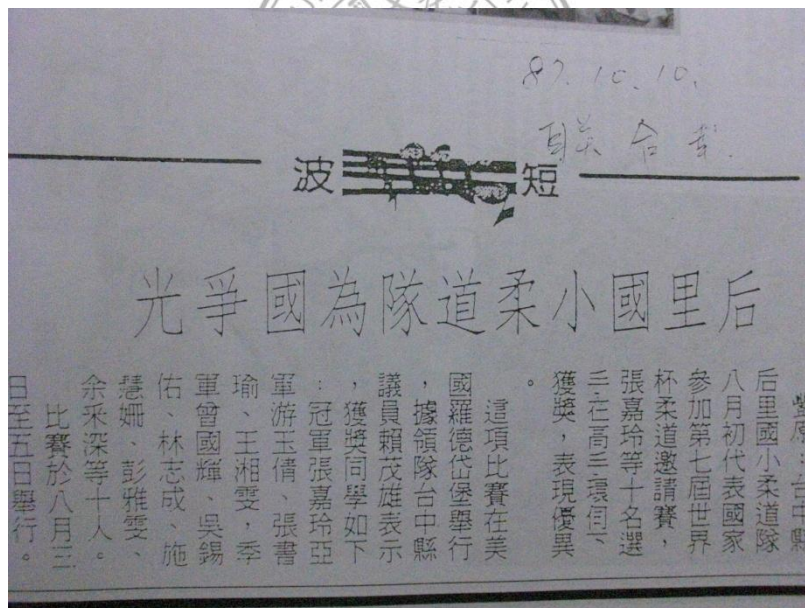 87.10.10.
聯合報
短波
后里國小柔道隊為國爭光
豐原:台中縣
后里國小柔道隊
八月初代表國家
參加第七屆世界
杯柔道邀請賽,
張嘉玲等十名選
手在高手環伺下
獲獎,表現優異
。
這項比賽在美
國羅德岱堡舉行
,據領隊台中縣
議員賴茂雄表示
,獲獎同學如下
:冠軍張嘉玲亞
軍游玉倩、張書
瑜、王湘雯,季
軍曾國輝、吳錫
佑、林志成、施
慧姍、彭雅雯、
余采深等十人。
比賽於八月三
日至五日舉行。